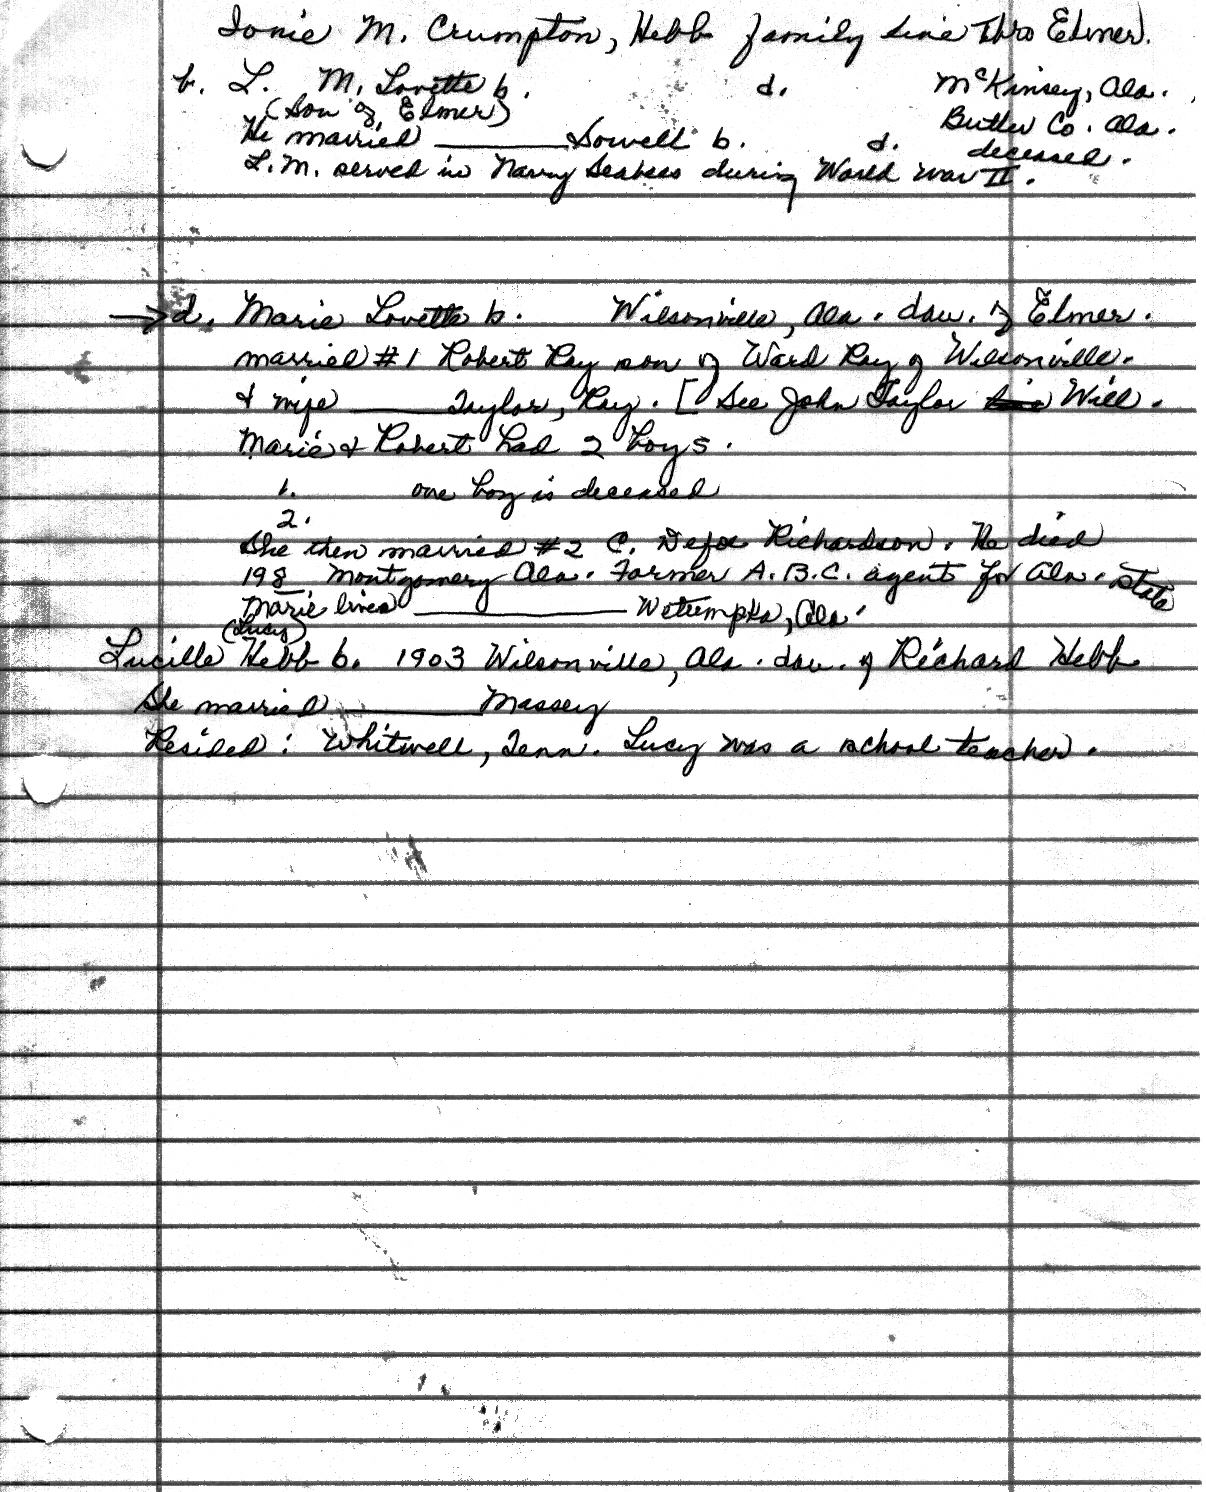 Ionie M. Crumpton, Hebb family line Thro Elmer.
b. L. M. Lovette b. d. McKinsey, Ala.
(Son of Elmer) Butler Co. Ala.
He married ______ Sowell b. d. deceased.
L.M. served in Navy Seabees during World War II.
→ d. Marie Lovette b. Wilsonville, Ala. dau. of Elmer.
married #1 Robert Ray son of Ward Ray of Wilsonville.
& wife ______ Taylor, Ray. [See John Taylor Will.
Marie & Robert had 2 boys.
1. one boy is deceased
2.
She then married #2 C. Defoe Richardson. He died
198_ Montgomery Ala. Former A.B.C. agent for Ala. State
Marie lives ______ Wetumpka, Ala.
(Lucy)
Lucille Hebb b. 1903 Wilsonville, Ala. dau. of Richard Hebb
She married ______ Massey
Resided: Whitwell, Tenn. Lucy was a school teacher.